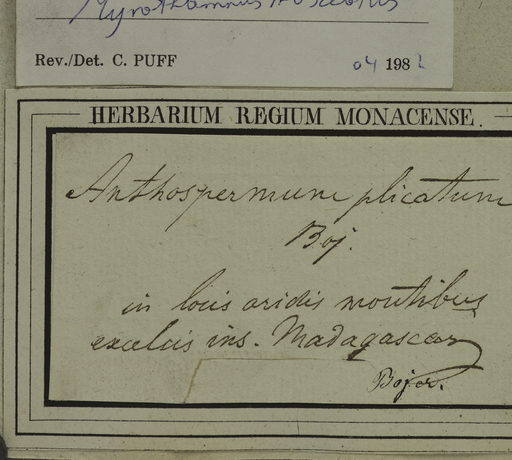 Myrothamnus moschatus
Rev./Det. C. PUFF 04 1982
HERBARIUM REGIUM MONACENSE.
Anthospermum plicatum
Boj.
in locis aridis montibus
excelsis ins. Madagascar
Bojer.